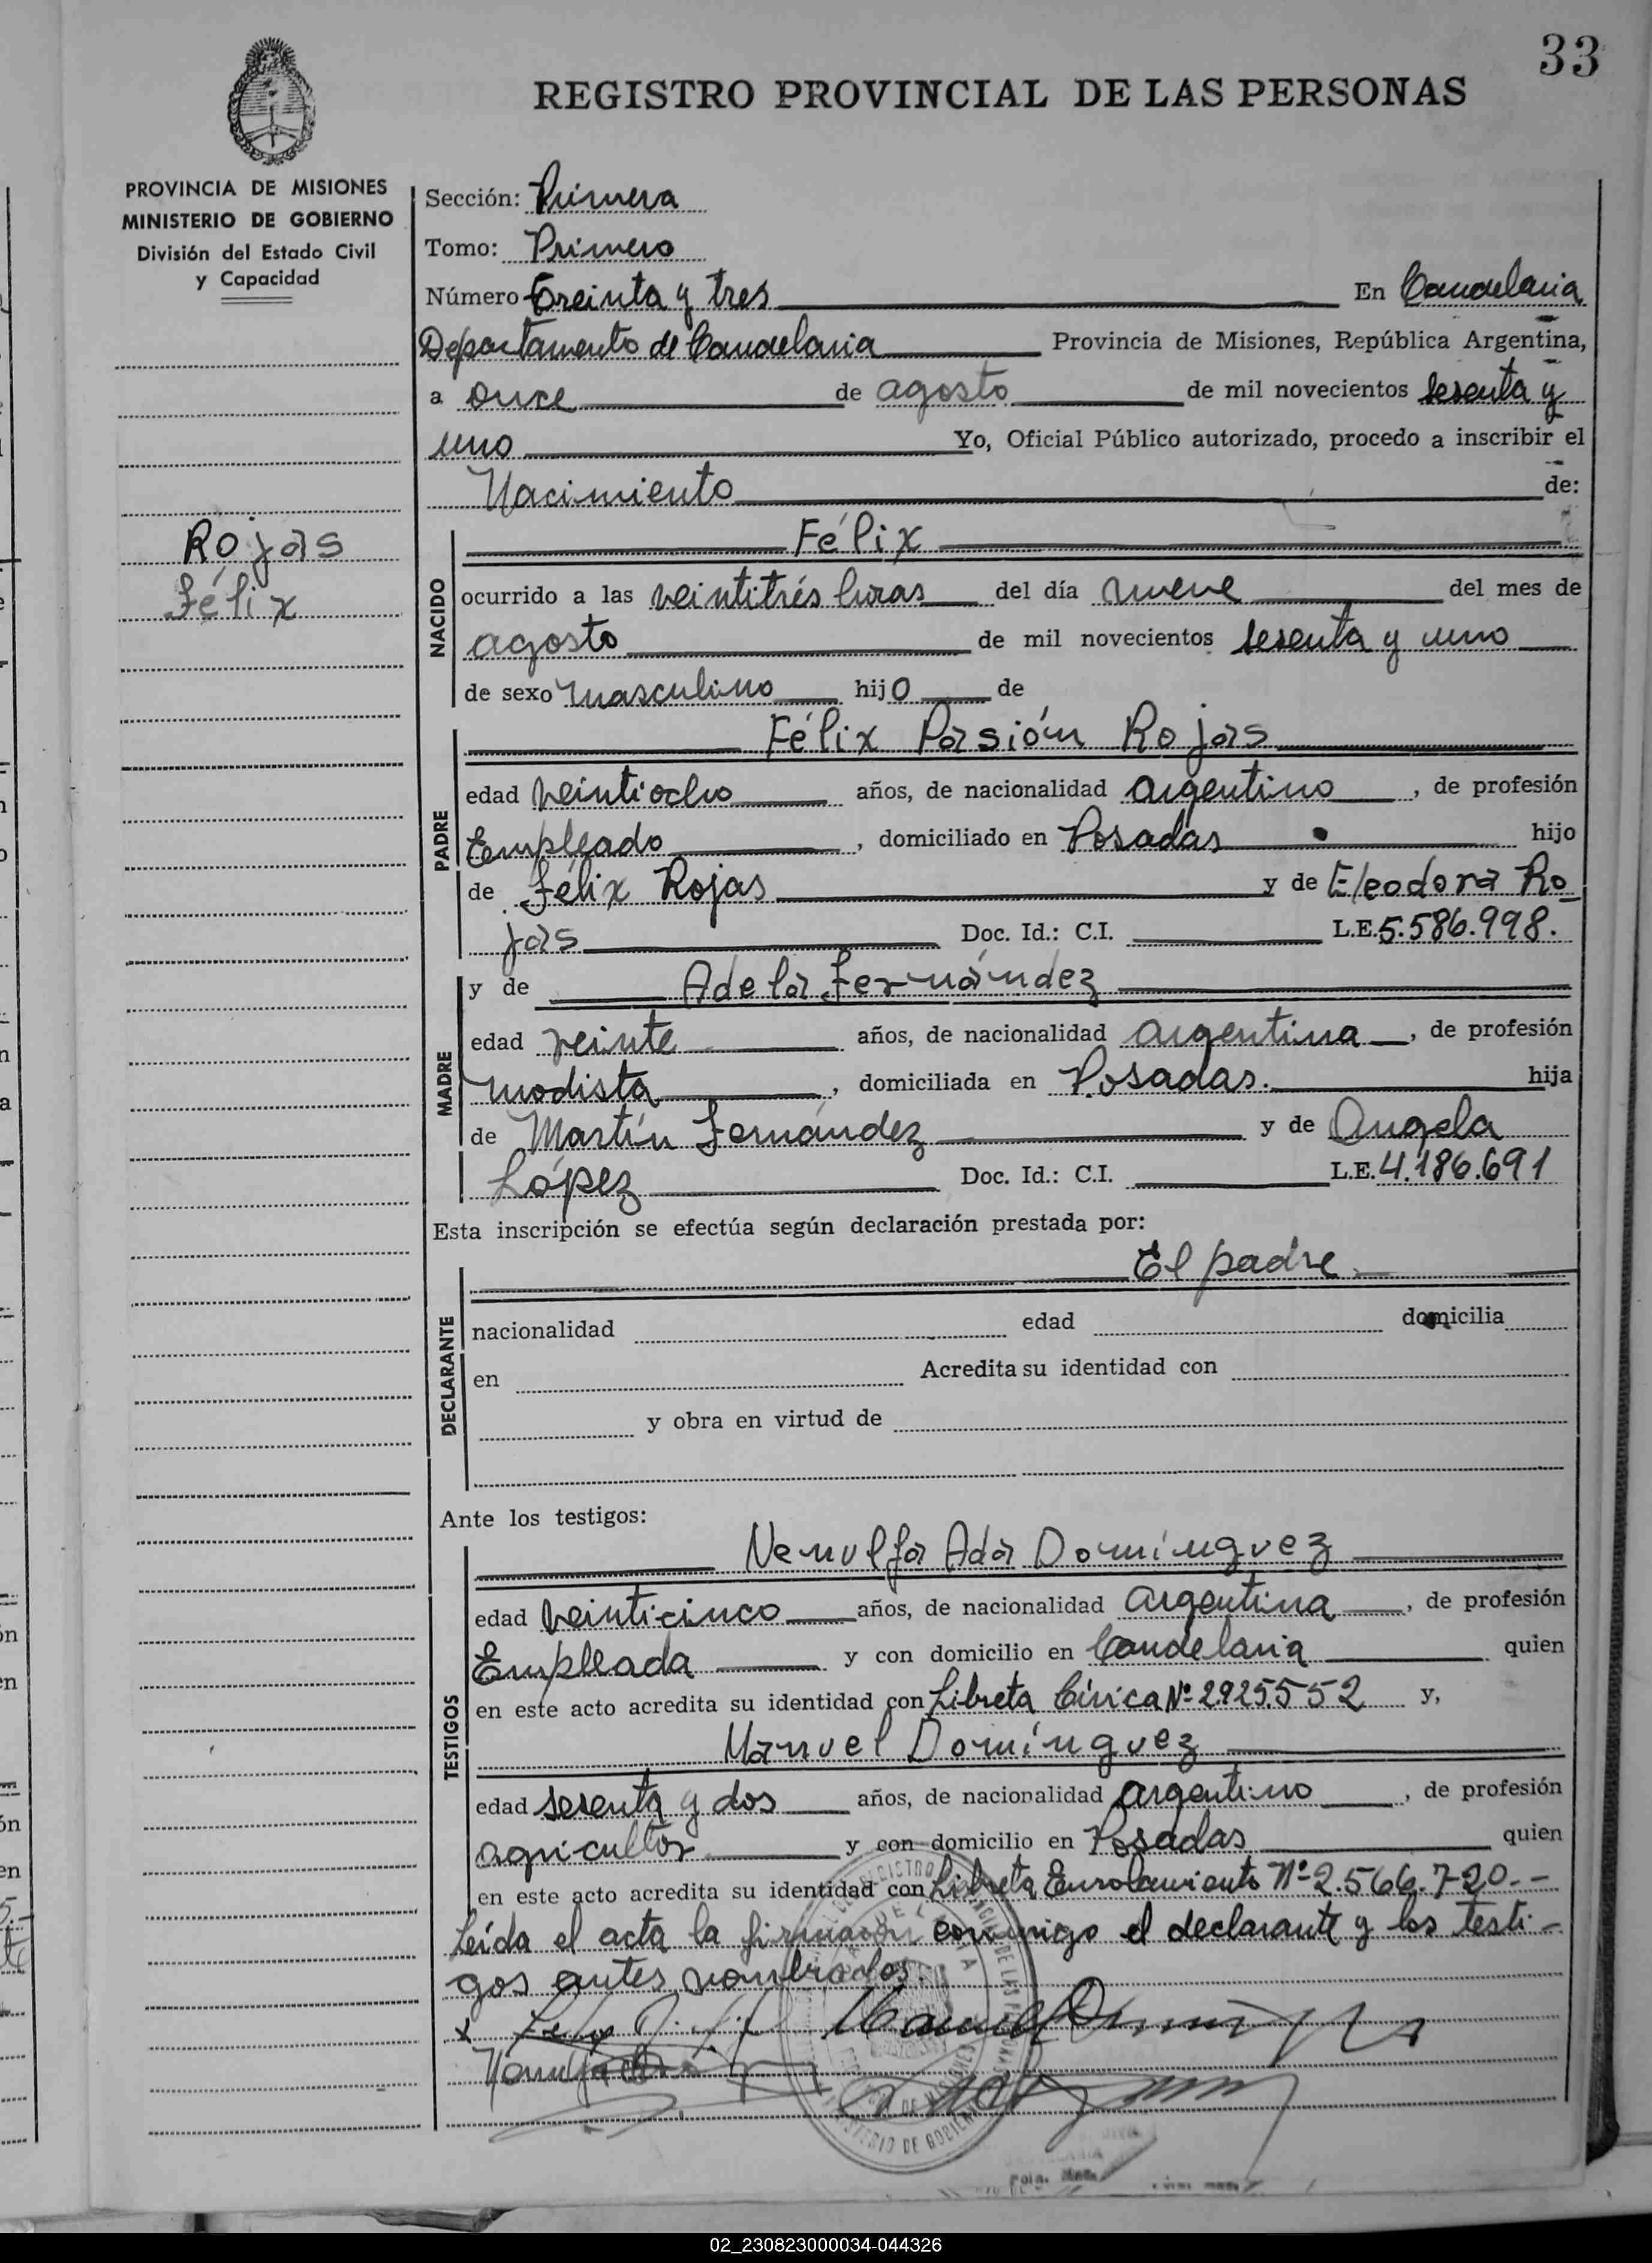 33
REGISTRO PROVINCIAL DE LAS PERSONAS
PROVINCIA DE MISIONES
MINISTERIO DE GOBIERNO
División del Estado Civil
y Capacidad
Rojas
Félix
Sección: Primera
Tomo: Primero
Número Treinta y tres En Candelaria
Departamento de Candelaria Provincia de Misiones, República Argentina,
a once de agosto de mil novecientos sesenta y
uno Yo, Oficial Público autorizado, procedo a inscribir el
Nacimiento de:
NACIDO
Félix
ocurrido a las veintitrés horas del día nueve del mes de
agosto de mil novecientos sesenta y uno
de sexo masculino hijo de
PADRE
Félix Pasión Rojas
edad veintiocho años, de nacionalidad argentino, de profesión
Empleado, domiciliado en Posadas hijo
de Félix Rojas y de Eleodora Ro
jas Doc. Id.: C.I. L.E. 5.586.998.
MADRE
y de Adela Fernández
edad veinte años, de nacionalidad argentina, de profesión
modista, domiciliada en Posadas. hija
de Martín Fernández y de Angela
López Doc. Id.: C.I. L.E. 4.186.691
Esta inscripción se efectúa según declaración prestada por:
DECLARANTE
El padre
nacionalidad edad domicilia
en Acredita su identidad con
y obra en virtud de
Ante los testigos:
TESTIGOS
Nenulfa Ada Domínguez
edad veinticinco años, de nacionalidad argentina, de profesión
Empleada y con domicilio en Candelaria quien
en este acto acredita su identidad con Libreta Cívica Nº 2.925.552 y,
Manuel Domínguez
edad sesenta y dos años, de nacionalidad argentino, de profesión
agricultor y con domicilio en Posadas quien
en este acto acredita su identidad con Libreta Enrolamiento Nº 2.566.720.-
Leída el acta la firmaron conmigo el declarante y los testi-
gos antes nombrados.
02_230823000034-044326